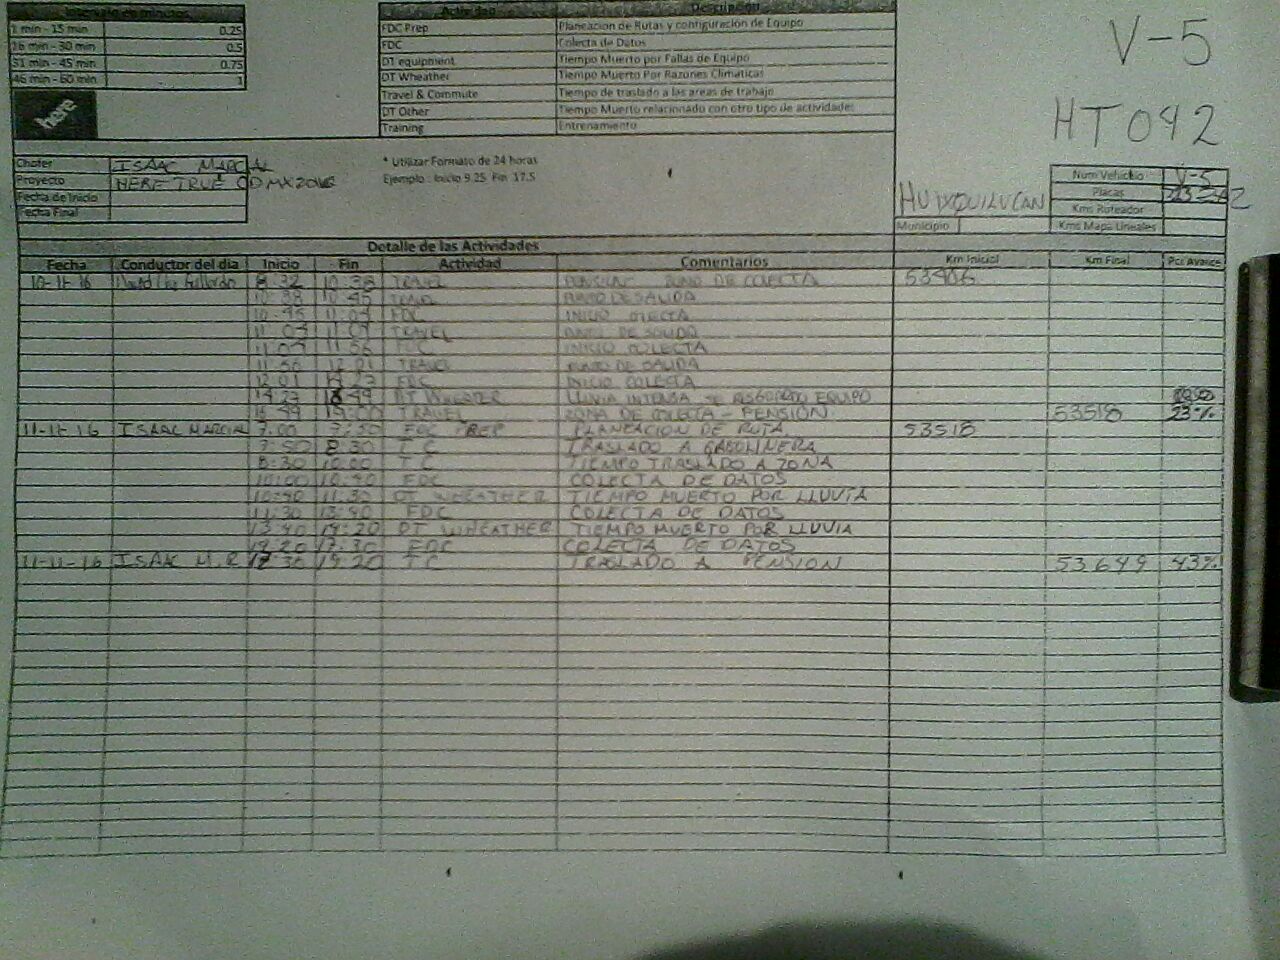 Intervalo de minutos
1 min - 15 min 0.25
16 min - 30 min 0.5
31 min - 45 min 0.75
46 min - 60 min 1
here
Actividad Descripcion
FDC Prep Planeacion de Rutas y configuración de Equipo
FDC Colecta de Datos
DT equipment Tiempo Muerto por Fallas de Equipo
DT Wheather Tiempo Muerto Por Razones Climaticas
Travel & Commute Tiempo de traslado a las areas de trabajo
DT Other Tiempo Muerto relacionado con otro tipo de actividades
Training Entrenamiento
V-5
HT042
Chofer ISAAC MARCIAL
Proyecto HERE TRUE CDMX2016
Fecha de Inicio
Fecha Final
* Utilizar Formato de 24 horas
Ejemplo : Inicio 9.25 Fin 17.5
HUIXQUILUCAN
Municipio
Num Vehiculo V-5
Placas
Kms Ruteador
Kms Mapa Lineales
Detalle de las Actividades
Fecha Conductor del dia Inicio Fin Actividad Comentarios Km Inicial Km Final Pct Avance
10-11-16 8:32 10:38 TRAVEL PENSION - DE COLECTA 53406
10:38 10:45 TRAVEL PUNTO DE SALIDA
10:45 11:04 FDC INICIO COLECTA
11:07 TRAVEL PUNTO DE SALIDA
11:07 11:56 FDC INICIO COLECTA
11:56 12:01 TRAVEL PUNTO DE SALIDA
12:01 14:27 FDC INICIO COLECTA
14:27 16:49 DT WHEATER LLUVIA INTENSA SE EQUIPO
16:49 19:00 TRAVEL ZONA DE COLECTA - PENSION 53518 23%
11-11-16 ISAAC MARCIAL 7:00 7:50 FDC PREP PLANEACION DE RUTA 53518
7:50 8:30 T C TRASLADO A GASOLINERA
8:30 10:00 T C TIEMPO TRASLADO A ZONA
10:00 10:40 FDC COLECTA DE DATOS
10:40 11:30 DT WHEATHER TIEMPO MUERTO POR LLUVIA
11:30 13:40 FDC COLECTA DE DATOS
13:40 14:20 DT WHEATHER TIEMPO MUERTO POR LLUVIA
14:20 17:30 FDC COLECTA DE DATOS
11-11-16 ISAAC M.R 17:30 19:20 T C TRASLADO A PENSION 53649 43%